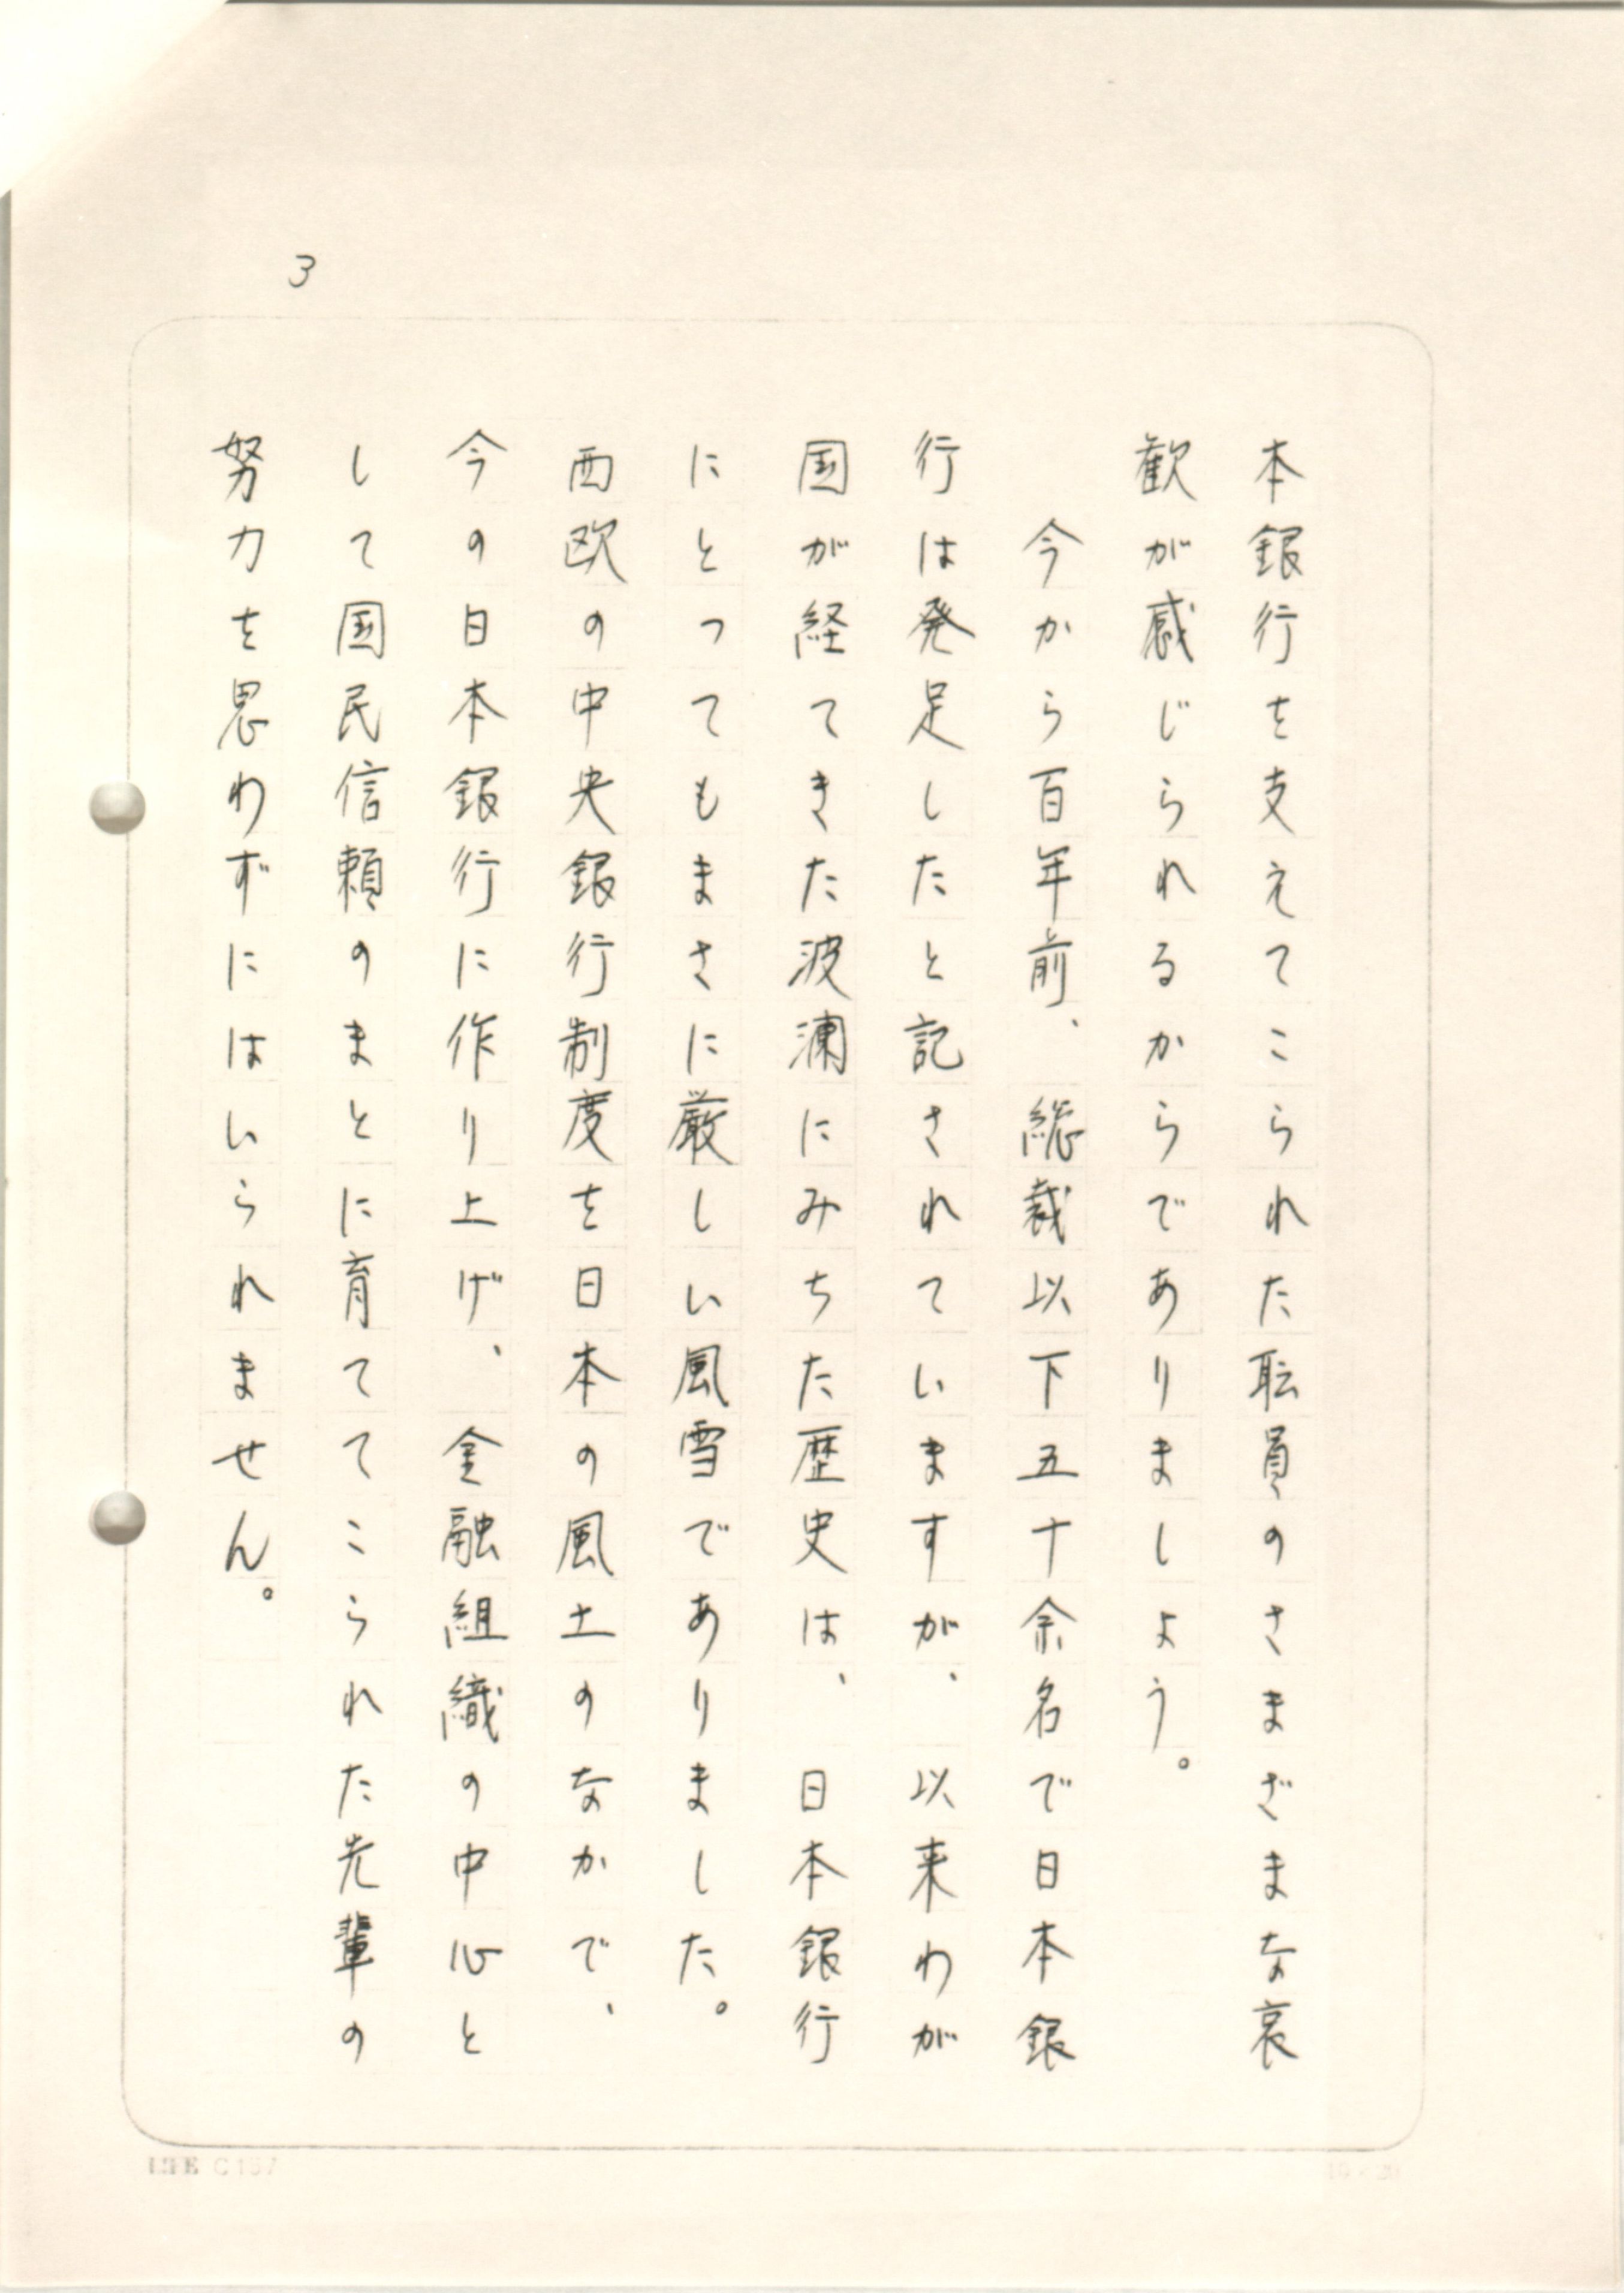 3
本銀行を支えてこられた耺員のさまざまな哀
歓が感じられるからでありましょう。
今から百年前、総裁以下五十余名で日本銀
行は発足したと記されていますが、以来わが
国が経てきた波瀾にみちた歴史は、日本銀行
にとってもまさに厳しい風雪でありました。
西欧の中央銀行制度を日本の風土のなかで、
今の日本銀行に作り上げ、金融組織の中心と
して国民信頼のまとに育ててこられた先輩の
努力を思わずにはいられません。
LIFE C157
10×20